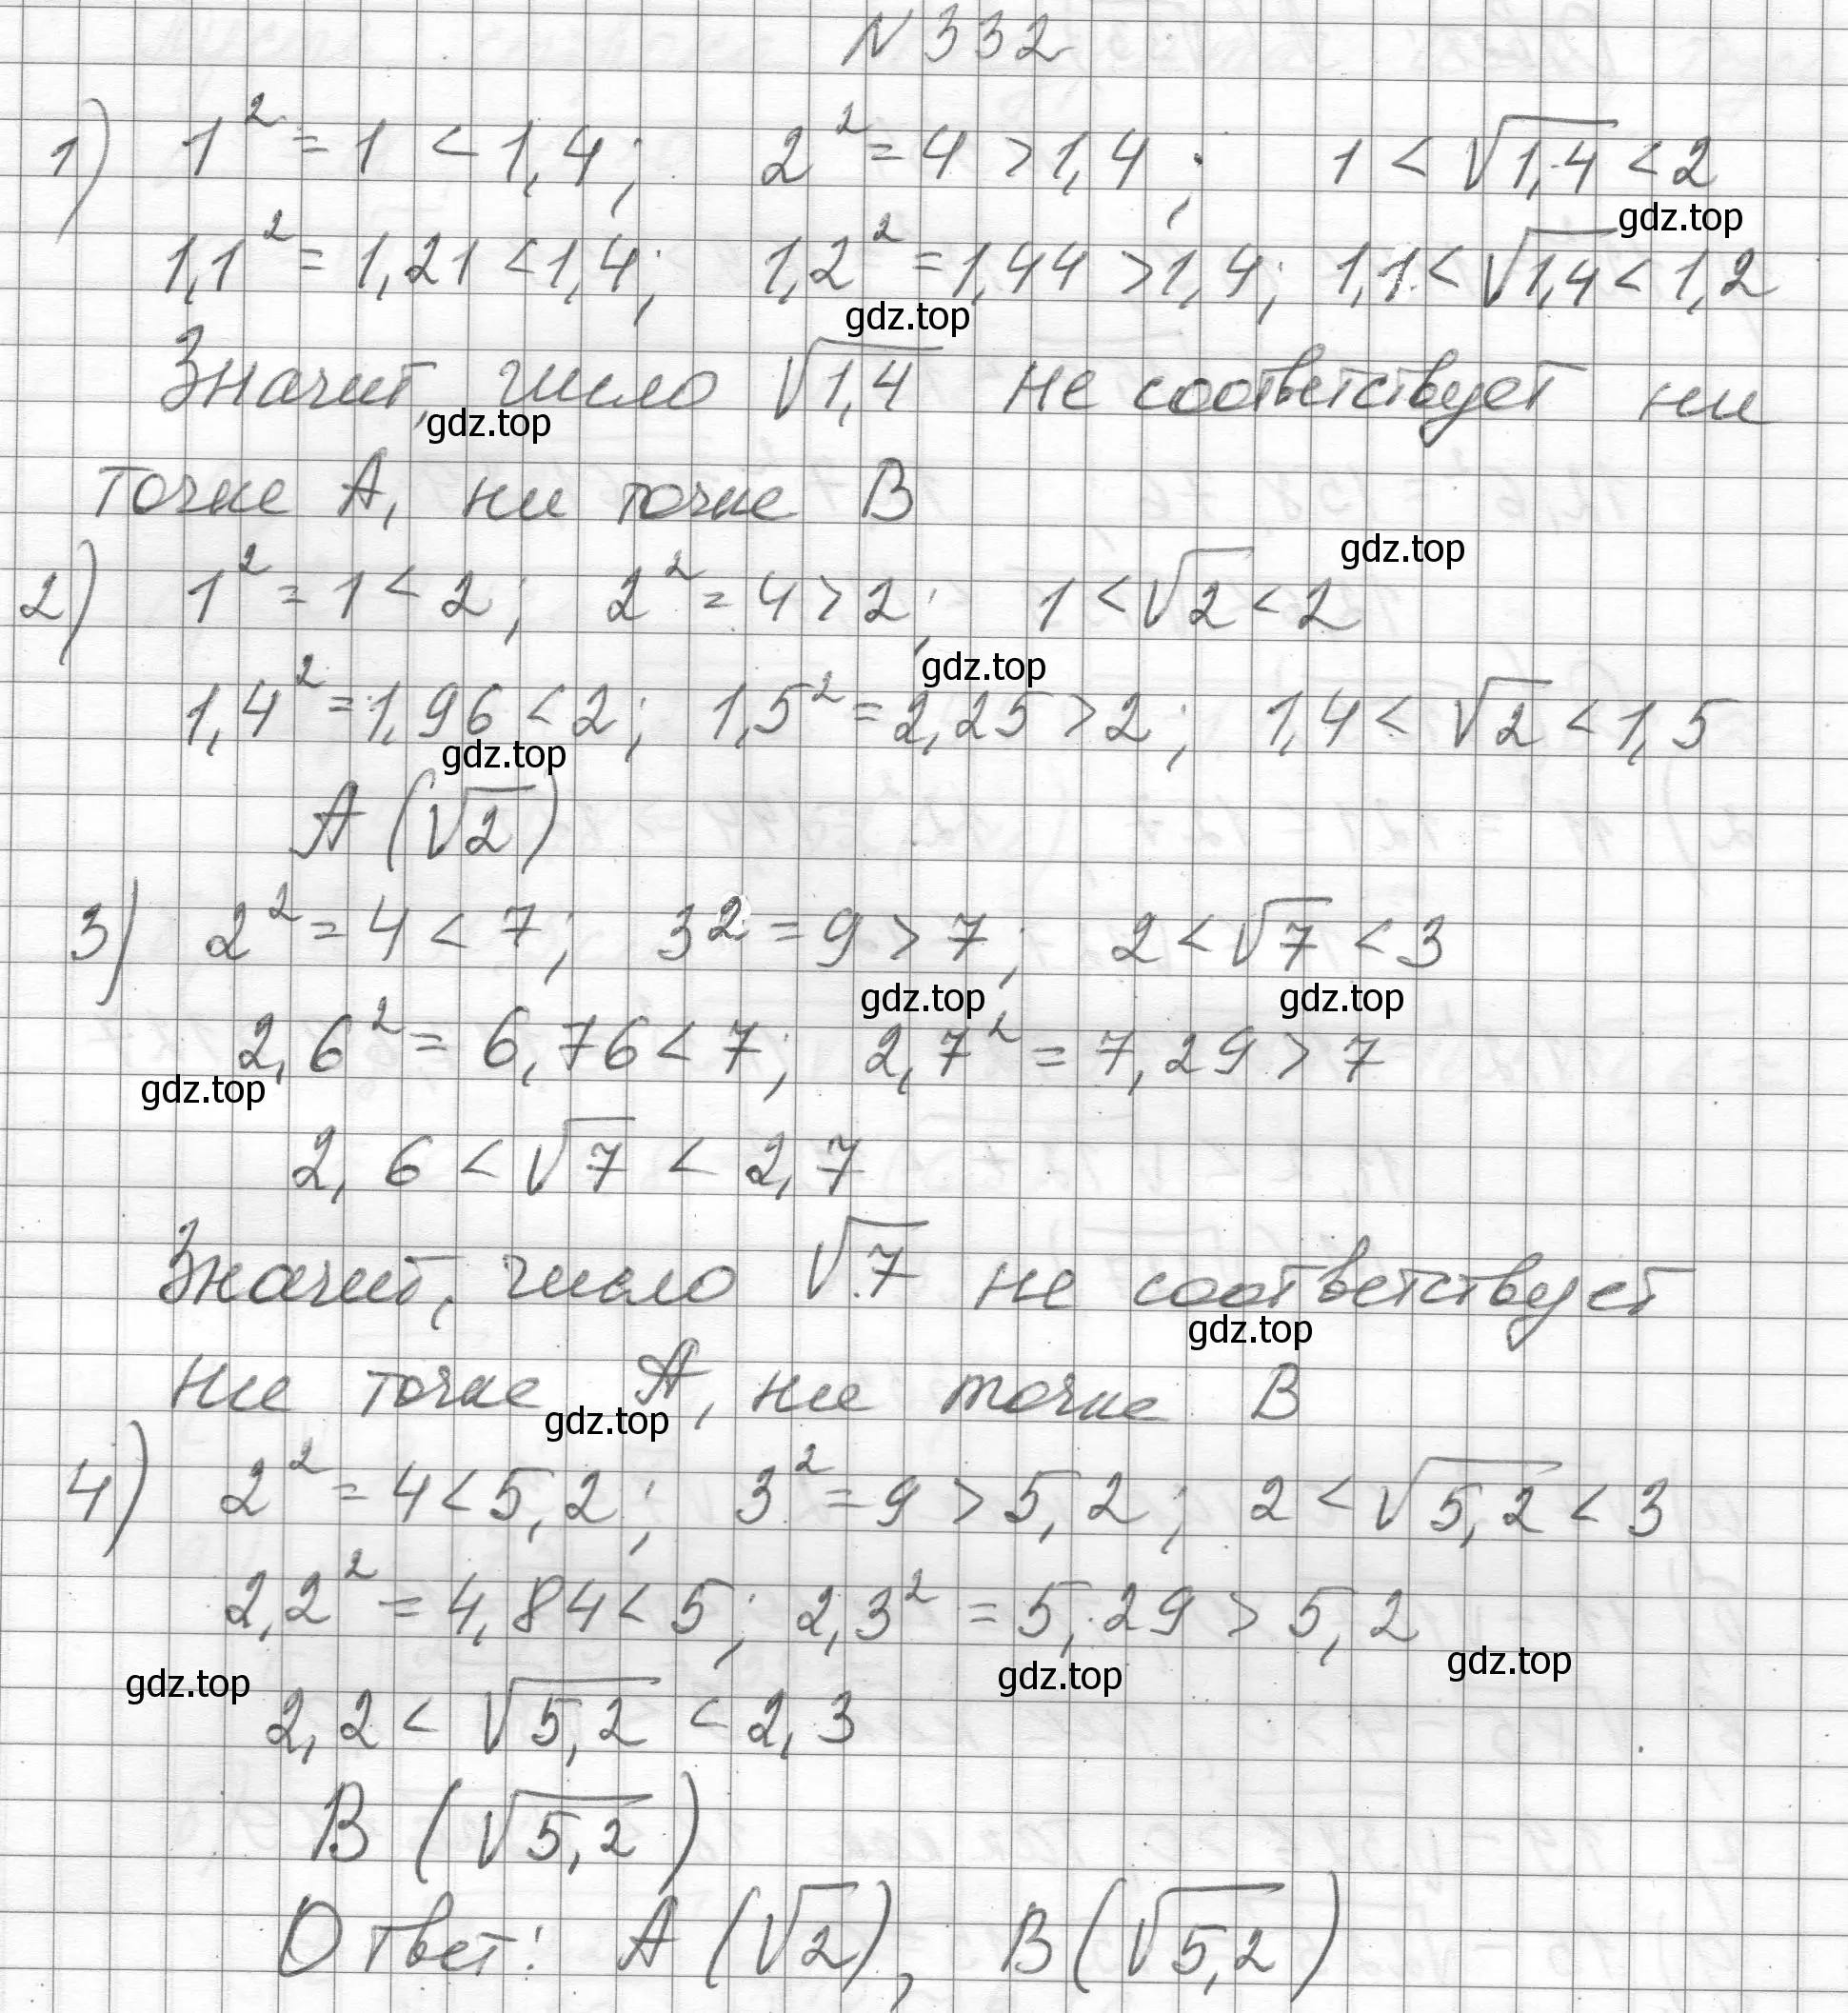 N 332
1) 1² = 1 < 1,4; 2² = 4 > 1,4; 1 < √1,4 < 2
gdz.top
1,1² = 1,21 < 1,4; 1,2² = 1,44 > 1,4; 1,1 < √1,4 < 1,2
gdz.top
Значит, число √1,4 не соответствует ни
gdz.top
точке А, ни точке В
gdz.top
2) 1² = 1 < 2; 2² = 4 > 2; 1 < √2 < 2
gdz.top
1,4² = 1,96 < 2; 1,5² = 2,25 > 2; 1,4 < √2 < 1,5
gdz.top
А (√2)
3) 2² = 4 < 7; 3² = 9 > 7; 2 < √7 < 3
gdz.top gdz.top
2,6² = 6,76 < 7; 2,7² = 7,29 > 7
gdz.top
2,6 < √7 < 2,7
Значит, число √7 не соответствует
gdz.top
ни точке А, ни точке В
gdz.top
4) 2² = 4 < 5,2; 3² = 9 > 5,2; 2 < √5,2 < 3
2,2² = 4,84 < 5; 2,3² = 5,29 > 5,2
gdz.top gdz.top gdz.top
2,2 < √5,2 < 2,3
В (√5,2)
Ответ: А (√2), В (√5,2)